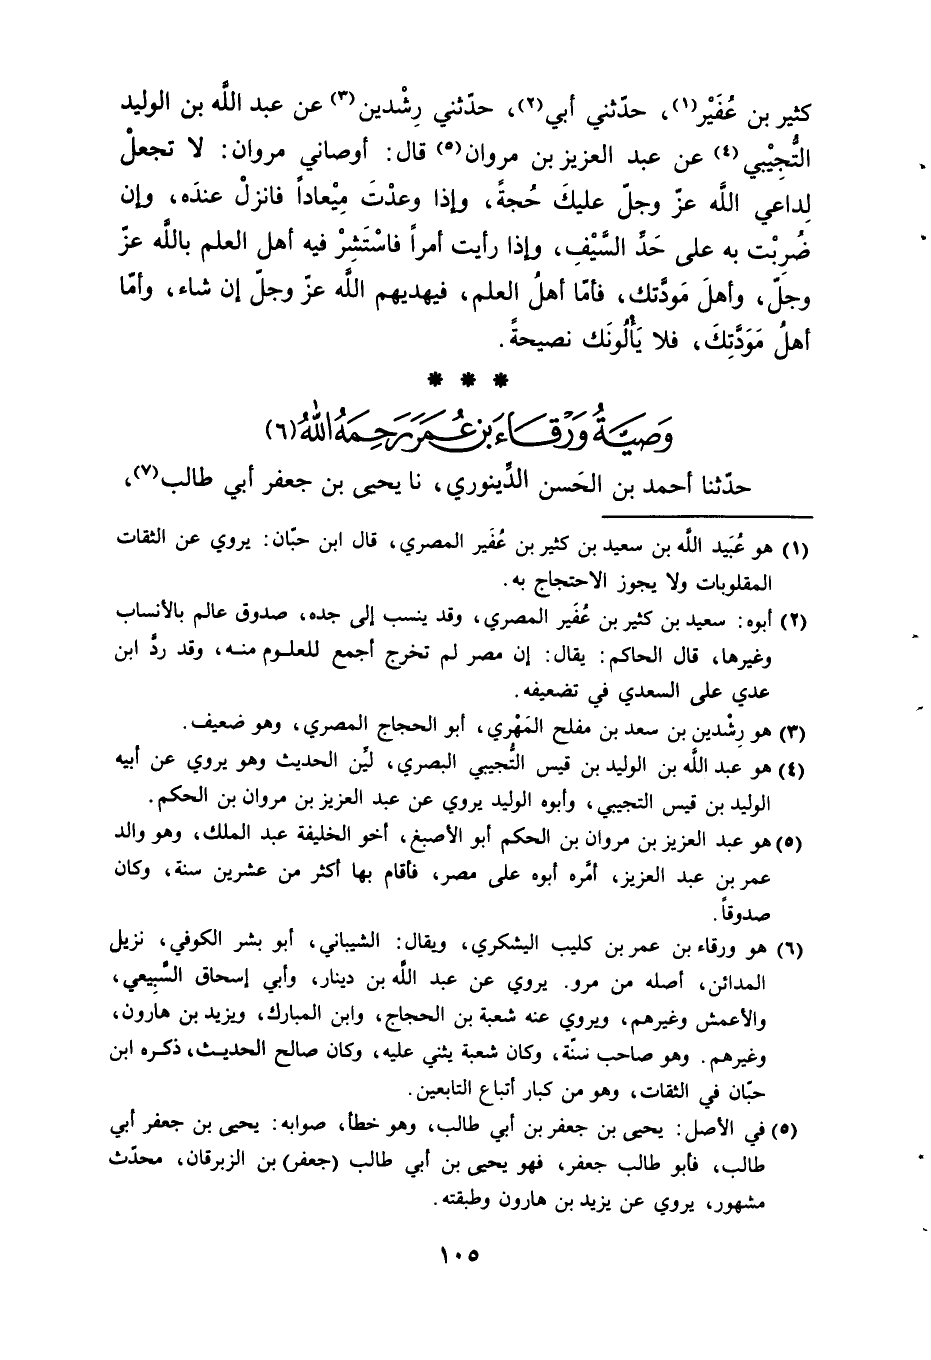 كثير بن عُفَيْر(١)، حدّثني أبي(٢)، حدّثني رِشْدين(٣) عن عبد اللَّه بن الوليد
التُّجِيْبي(٤) عن عبد العزيز بن مروان(٥) قال: أوصاني مروان: لا تجعلْ
لِداعي اللَّه عزّ وجلّ عليكَ حُجةً، وإذا وعدْتَ مِيْعاداً فانزلْ عندَه، وإن
ضُرِبْت به على حَدِّ السَّيْفِ، وإذا رأيت أمراً فاسْتَشِرْ فيه أهل العلم باللَّه عزّ
وجلّ، وأهلَ مَودَّتك، فأمّا أهلُ العلم، فيهديهم اللَّه عزّ وجلّ إن شاء، وأمّا
أهلُ مَوَدَّتِكَ، فلا يَأْلُونَك نصيحةً.
* * *
وَصِيَّةُ وَرْقَاءَ بنِ عُمَرَ رَحِمَهُ اللهُ (٦)
حدّثنا أحمد بن الحَسن الدِّينوري، نا يحيى بن جعفر أبي طالب(٧)،
(١) هو عُبَيد اللَّه بن سعيد بن كثير بن عُفَير المصري، قال ابن حبّان: يروي عن الثقات
المقلوبات ولا يجوز الاحتجاج به.
(٢) أبوه: سعيد بن كثير بن عُفَير المصري، وقد ينسب إلى جده، صدوق عالم بالأنساب
وغيرها، قال الحاكم: يقال: إن مصر لم تخرج أجمع للعلوم منه، وقد ردَّ ابن
عدي على السعدي في تضعيفه.
(٣) هو رِشْدين بن سعد بن مفلح المَهْري، أبو الحجاج المصري، وهو ضعيف.
(٤) هو عبد اللَّه بن الوليد بن قيس التُّجيبي البصري، ليِّن الحديث وهو يروي عن أبيه
الوليد بن قيس التجيبي، وأبوه الوليد يروي عن عبد العزيز بن مروان بن الحكم.
(٥) هو عبد العزيز بن مروان بن الحكم أبو الأصبغ، أخو الخليفة عبد الملك، وهو والد
عمر بن عبد العزيز، أمَّره أبوه على مصر، فأقام بها أكثر من عشرين سنة، وكان
صدوقاً.
(٦) هو ورقاء بن عمر بن كليب اليشكري، ويقال: الشيباني، أبو بشر الكوفي، نزيل
المدائن، أصله من مرو. يروي عن عبد اللَّه بن دينار، وأبي إسحاق السَّبِيعي،
والأعمش وغيرهم، ويروي عنه شعبة بن الحجاج، وابن المبارك، ويزيد بن هارون،
وغيرهم. وهو صاحب سنّة، وكان شعبة يثني عليه، وكان صالح الحديث، ذكره ابن
حبّان في الثقات، وهو من كبار أتباع التابعين.
(٥) في الأصل: يحيى بن جعفر بن أبي طالب، وهو خطأ، صوابه: يحيى بن جعفر أبي
طالب، فأبو طالب جعفر، فهو يحيى بن أبي طالب (جعفر) بن الزبرقان، محدّث
مشهور، يروي عن يزيد بن هارون وطبقته.
١٠٥